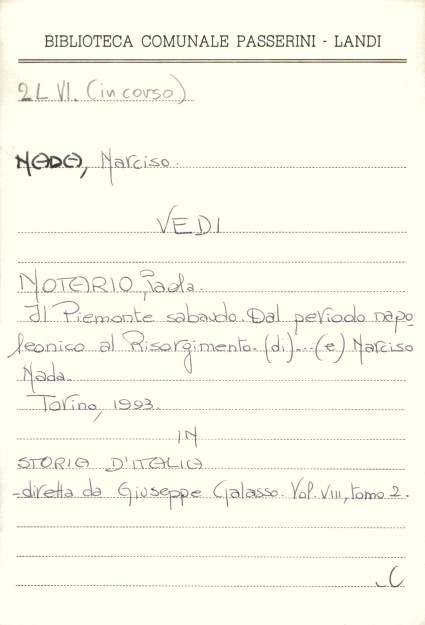 BIBLIOTECA COMUNALE PASSERINI - LANDI
2 L VI. (in corso)
NADA, Narciso.
VEDI
NOTARIO, Paola.
Il Piemonte sabaudo. Dal periodo napo-
leonico al Risorgimento. (di)...(e) Narciso
Nada.
Torino, 1993.
IN
STORIA D'ITALIA
diretta da Giuseppe Galasso. Vol. VIII, tomo 2.